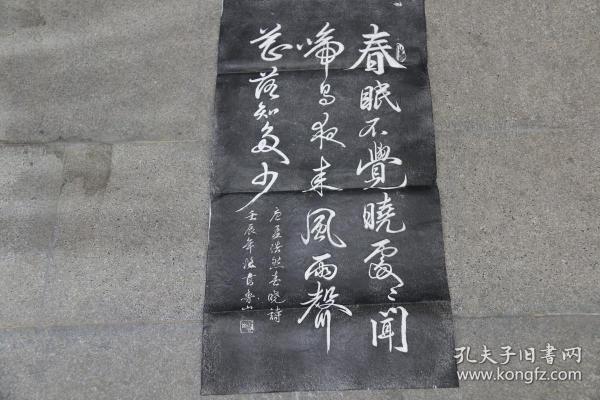 春眠不覺曉處々聞
啼鳥夜来風雨聲
花落知多少
唐孟浩然春曉詩
壬辰年
孔夫子旧书网
www.kongfz.com